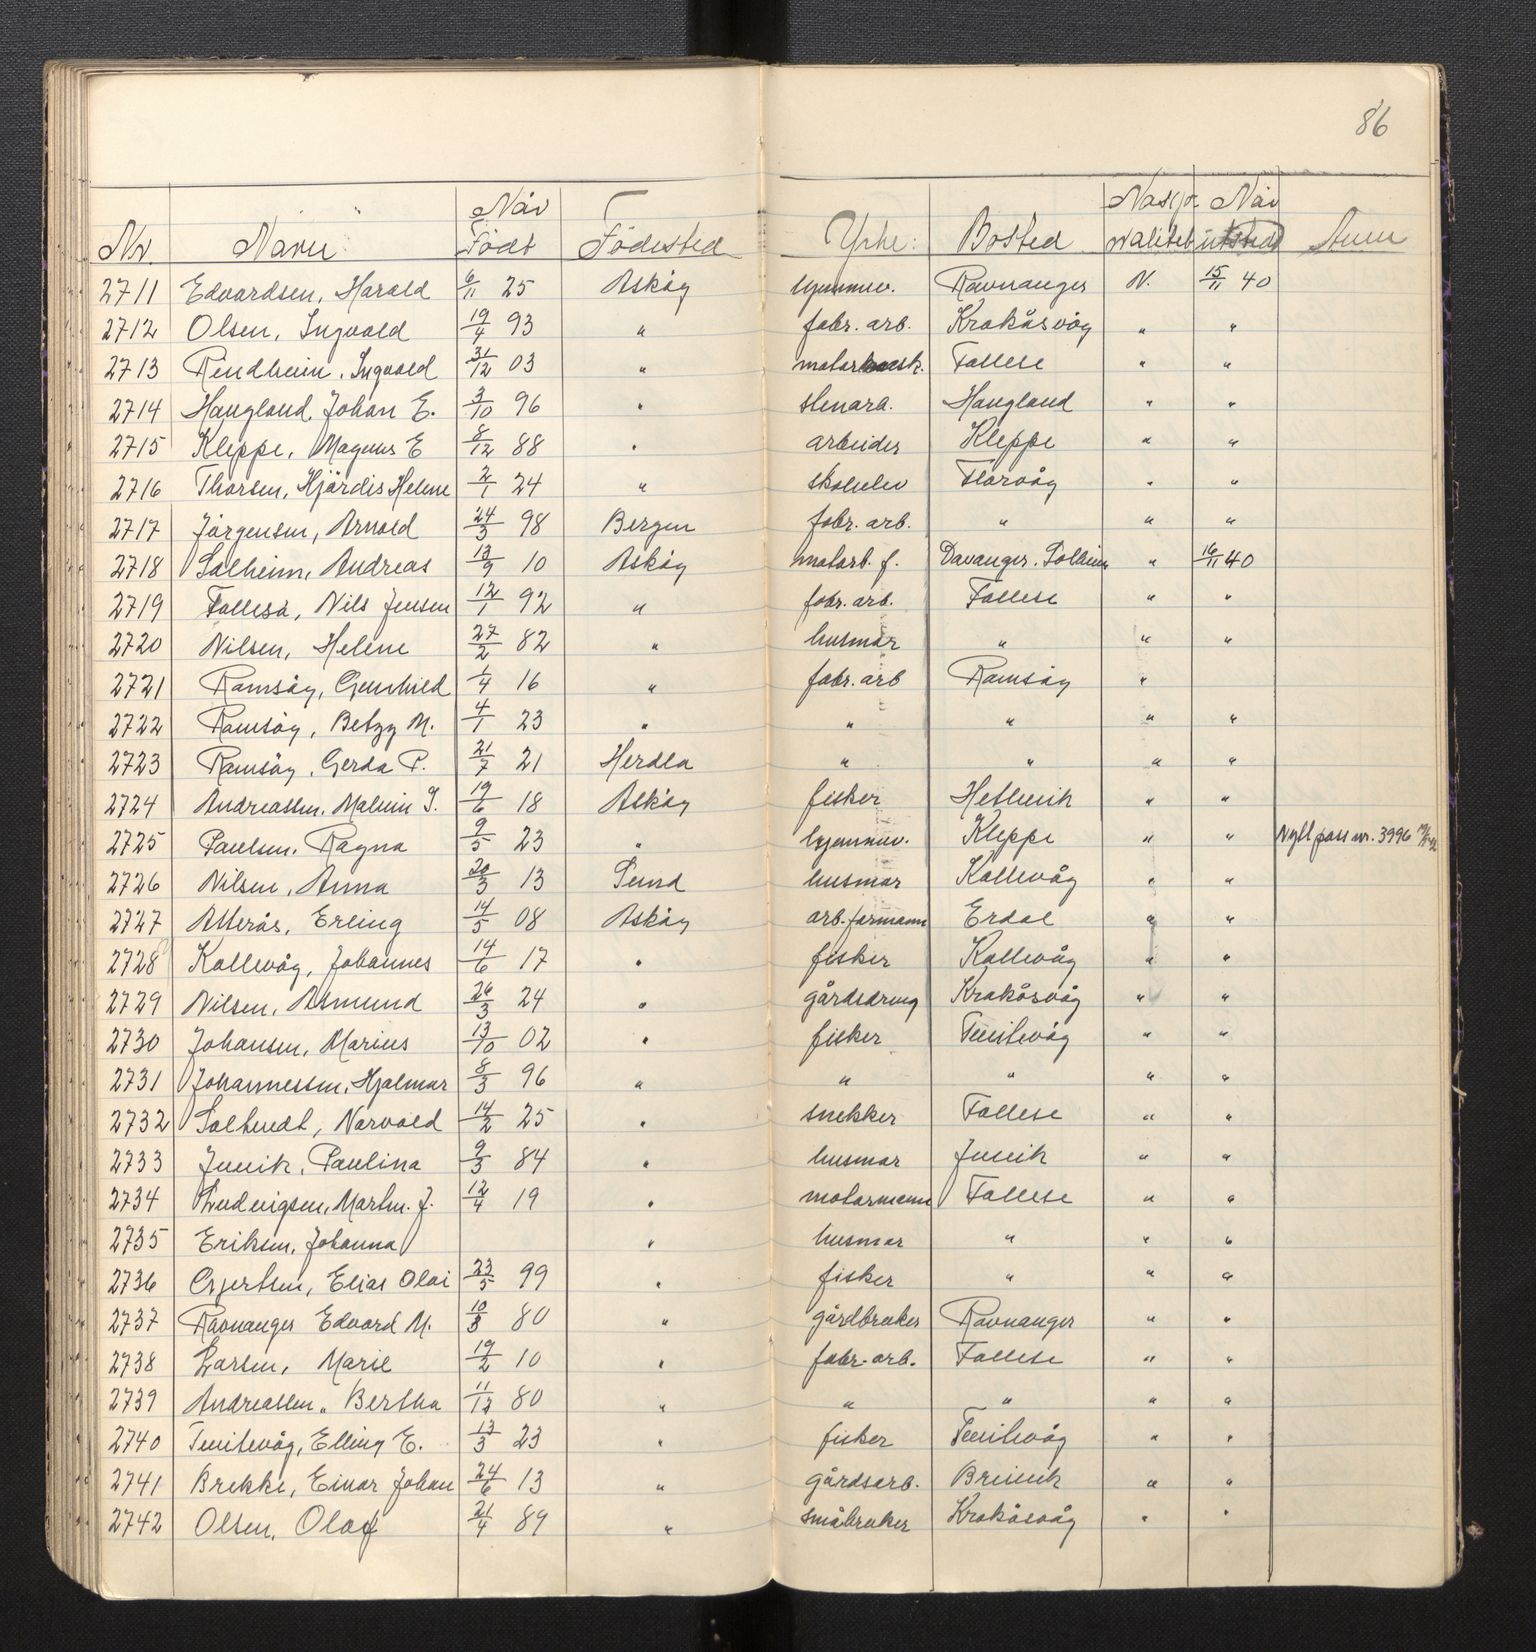 86
Når Nasjo- Når
Nr. Navn: Født Fødested Yrke: Bosted nalitet utsted Anm
2711 Edvardsen, Harald 6/11 25 Askøy hjemmev. Ravnanger N. 15/11 40
2712 Olsen, Ingvald 19/4 93 " fabr. arb. Krokåsvåg " "
2713 Rindheim, Ingvald 31/12 03 " motormask. Follese " "
2714 Haugland, Johan E. 3/10 96 " stenarb. Haugland " "
2715 Kleppe, Magnus E 8/12 88 " arbeider Kleppe " "
2716 Thorsen, Hjärdis Helene 2/1 24 " skoleelev Florvåg " "
2717 Jörgensen, Arnold 24/3 98 Bergen fabr. arb. " " "
2718 Solheim, Andreas 13/9 10 Askøy motorb. f. Davanger. Solheim " 16/11 40
2719 Follesø, Nils Jensen 12/1 92 " fabr. arb. Follese " "
2720 Nilsen, Helene 27/2 82 " husmor " " "
2721 Ramsöy, Gunhild 1/4 16 " fabr. arb Ramsöy "
2722 Ramsöy, Betzy M. 4/1 23 " " " " "
2723 Ramsöy, Gerda P. 21/7 21 Herdla " " " "
2724 Andreassen, Malvin I. 19/6 18 Askøy fisker Hetlevik " "
2725 Paulsen, Ragna 9/5 23 " hjemmev. Kleppe " " Nytt pass nr. 3996
2726 Nilsen, Anna 20/3 13 Sund husmor Kollevåg " "
2727 Alterås, Erling 14/5 08 Askøy arb. formann Erdal " "
2728 Kollevåg, Johannes 14/6 17 " fisker Kollevåg " "
2729 Nilsen, Asmund 26/3 24 " gårdsdreng Krokåsvåg " "
2730 Johansen, Marius 13/10 02 " fisker Tveitevåg " "
2731 Johannessen, Hjalmar 8/3 96 " " " " "
2732 Soltvedt, Norvald 14/2 25 " snekker Follese " "
2733 Juvik, Paulina 9/3 84 " husmor Juvik " "
2734 Ludvigsen, Martin. J. 12/4 19 " motormann Follese " "
2735 Eriksen, Johanna " husmor " " "
2736 Gjertsen, Elias Olai 23/5 99 " fisker " " "
2737 Ravnanger Edvard M. 10/3 80 " gårdbruker Ravnanger " "
2738 Larsen, Marie 19/2 10 " fabr. arb. Follese " "
2739 Andreassen, Bertha 11/12 80 " " " " "
2740 Tveitevåg, Elling E. 13/3 23 " fisker Tveitevåg " "
2741 Brekke, Einar Johan 24/6 13 " gårdsarb. Breivik " "
2742 Olsen, Olaf 21/4 89 " småbruker Krokåsvåg " "